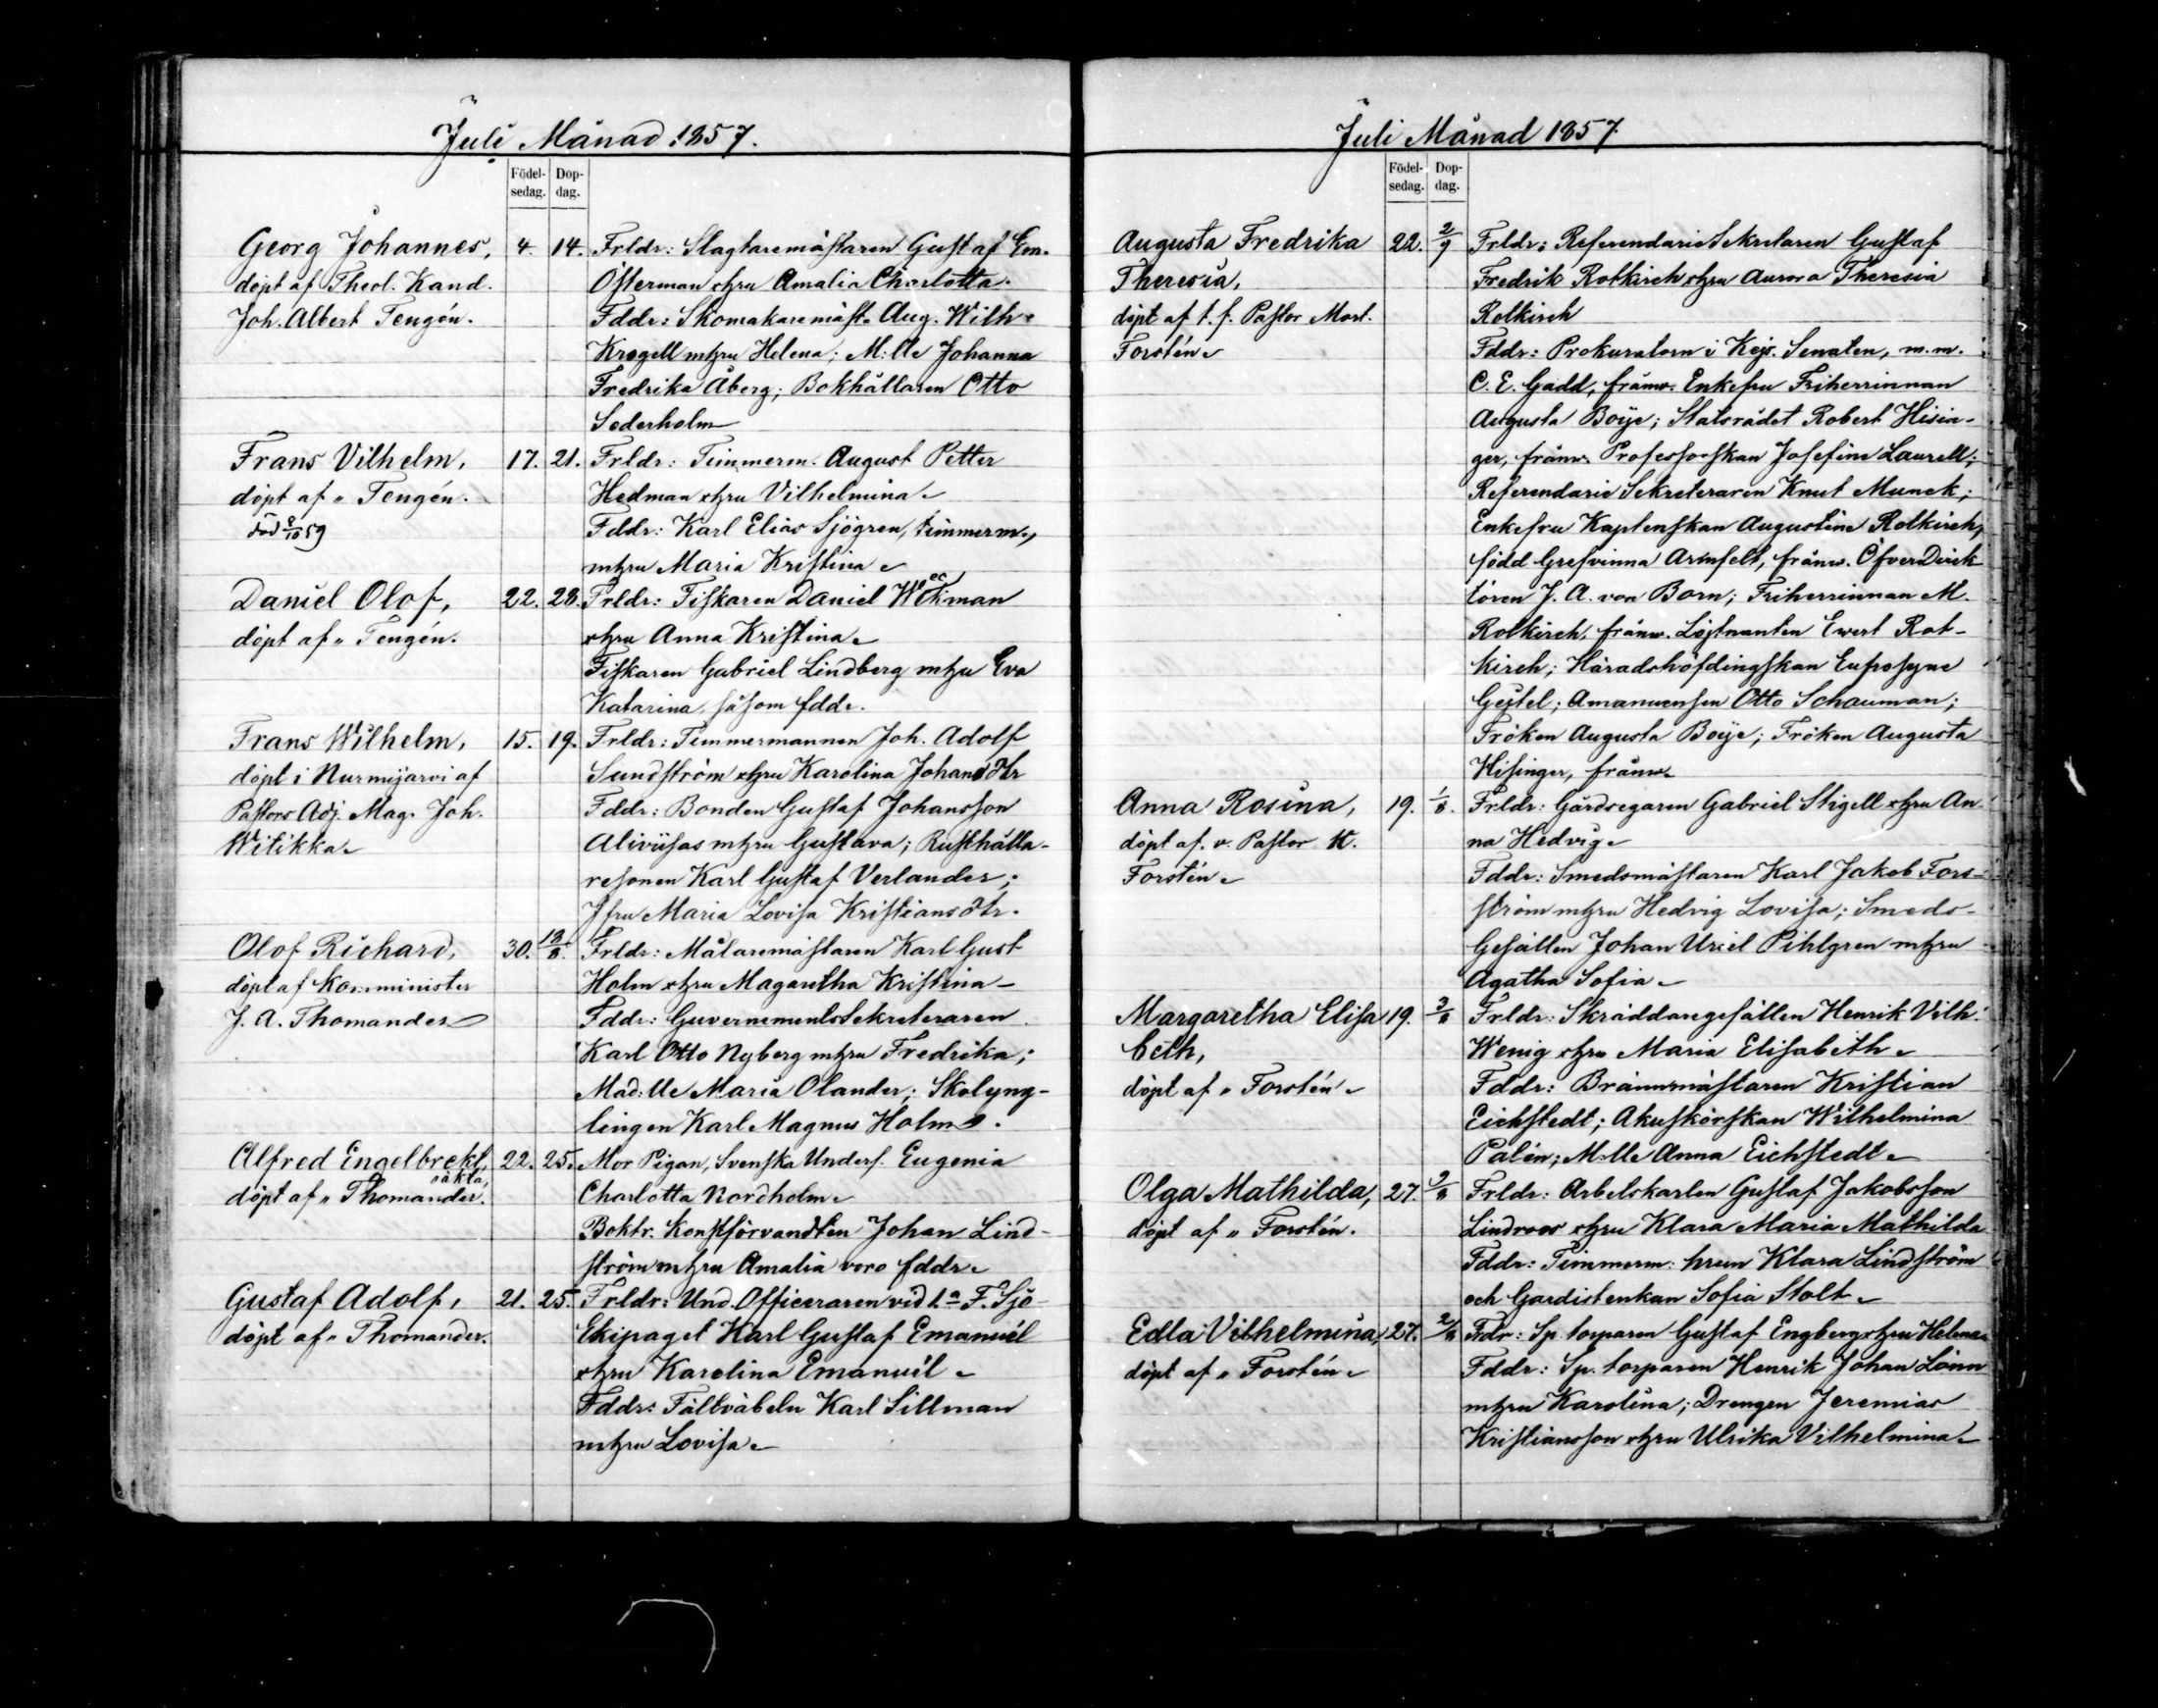 Juli Månad 1857.
Födel-
sedag.
Dop-
dag.
Georg Johannes,
döpt af Theol. Kand.
Joh. Albert Tengén.
4. 14.
Frldr: Slagtaremästaren Gustaf Em.
Österman o hru Amalia Charlotta.
Fddr: Skomakaremäst. Aug. Wilh.
Krogell m hru Helena; M:lle Johanna
Fredrika Åberg; Bokhållaren Otto
Söderholm
Frans Vilhelm,
döpt af " Tengén.
död 9/10 59
17. 21.
Frldr: Timmerm. August Petter
Hedman o hru Vilhelmina
Fddr: Karl Elias Sjögren, timmerm.,
m hru Maria Kristina
Daniel Olof,
döpt af " Tengén.
22. 28.
Frldr: Fiskaren Daniel Wekman
o hru Anna Kristina
Fiskaren Gabriel Lindberg m hru Eva
Katarina, såsom fddr.
Frans Wilhelm,
döpt i Nurmijarvi af
Pastors Adj. Mag. Joh.
Witikka
15. 19.
Frldr: Timmermannen Joh. Adolf
Sundström o hru Karolina Johans dtr
Fddr: Bonden Gustaf Johansson
Aliviisas m hru Gustava; Rusthålla-
resonen Karl Gustaf Verlander;
Jfru Maria Lovisa Kristians dtr.
Olof Richard,
döpt af Komminister
J. A. Thomander
30. 13/8.
Frldr: Målaremästaren Karl Gust
Holm o hru Magaretha Kristina
Fddr: Guvernements Sekreteraren
Karl Otto Nyberg m hru Fredrika;
Mad:lle Maria Olander; Skolyng-
lingen Karl Magnus Holm.
Alfred Engelbrekt,
oäkta,
döpt af " Thomander.
22. 25.
Mor Pigan, Svenska Unders. Eugenia
Charlotta Nordholm
Boktr. Konstförvandten Johan Lind-
ström m hru Amalia voro fddr
Gustaf Adolf,
döpt af " Thomander.
21. 25.
Frldr: Und. Officeraren vid 1.a F. Sjö
Ekipaget Karl Gustaf Emanuél
o hru Karolina Emanuél
Fddr: Fältväbeln Karl Sillman
m hru Lovisa
Juli Månad 1857.
Födel-
sedag.
Dop-
dag.
Augusta Fredrika
Theresia,
döpt af t. f. Pastor Mart.
Forstén
22. 2/9
Frldr: Referendarie Sekretaren Gustaf
Fredrik Rotkirch o hru Aurora Theresia
Rotkirch
Fddr: Prokuratorn i Kejs. Senaten, m.m.
C. E. Gadd, frånv. Enkefru Friherrinnan
Augusta Boije; Statsrådet Robert Hisin-
ger, frånv. Professorskan Josefine Laurell;
Referendarie Sekreteraren Knut Munck;
Enkefru Kaptenskan Augustine Rotkirch,
född Grefvinna Armfelt, frånv. ÖfverDirek
tören J. A. von Born; Friherrinnan M.
Rotkirch, frånv. Löjtnanten Ewert Rot-
kirch; Häradshöfdingskan Eufrosyne
Geitel; Amanuensen Otto Schauman;
Fröken Augusta Boije; Fröken Augusta
Hisinger, frånv.
Anna Rosina,
döpt af. v. Pastor M.
Forstén
19. 1/8.
Frldr: Gårdsegaren Gabriel Stigell o hru An-
na Hedvig
Fddr: Smedsmästaren Karl Jakob Fors-
ström m hru Hedvig Lovisa; Smeds-
Gesällen Johan Uriel Pihlgren m hru
Agatha Sofia
Margaretha Elisa
beth,
döpt af " Forstén
19. 3/8
Frldr: Skräddaregesällen Henrik Vilh.
Wenig o hru Maria Elisabeth
Fddr: Brännmästaren Kristian
Eichstedt; Akuskörskan Wilhelmina
Palén; M:lle Anna Eichstedt
Olga Mathilda,
döpt af " Forstén.
27. 9/8
Frldr: Arbetskarlen Gustaf Jakobsson
Lindroos o hru Klara Maria Mathilda
Fddr: Timmerm: hrun Klara Lindström
och Gardistenkan Sofia Stolt
Edla Vilhelmina,
döpt af " Forstén
27. 2/8
Frdr: Sp. torparen Gustaf Engberg o hru Helena
Fddr: Sp. torparen Henrik Johan Lönn
m hru Karolina; Drengen Jeremias
Kristiansson o hru Ulrika Vilhelmina